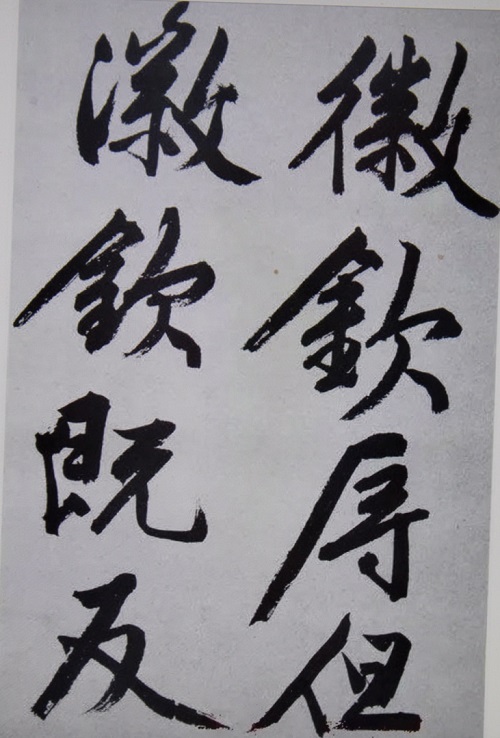 徽欽辱但
徽欽既反